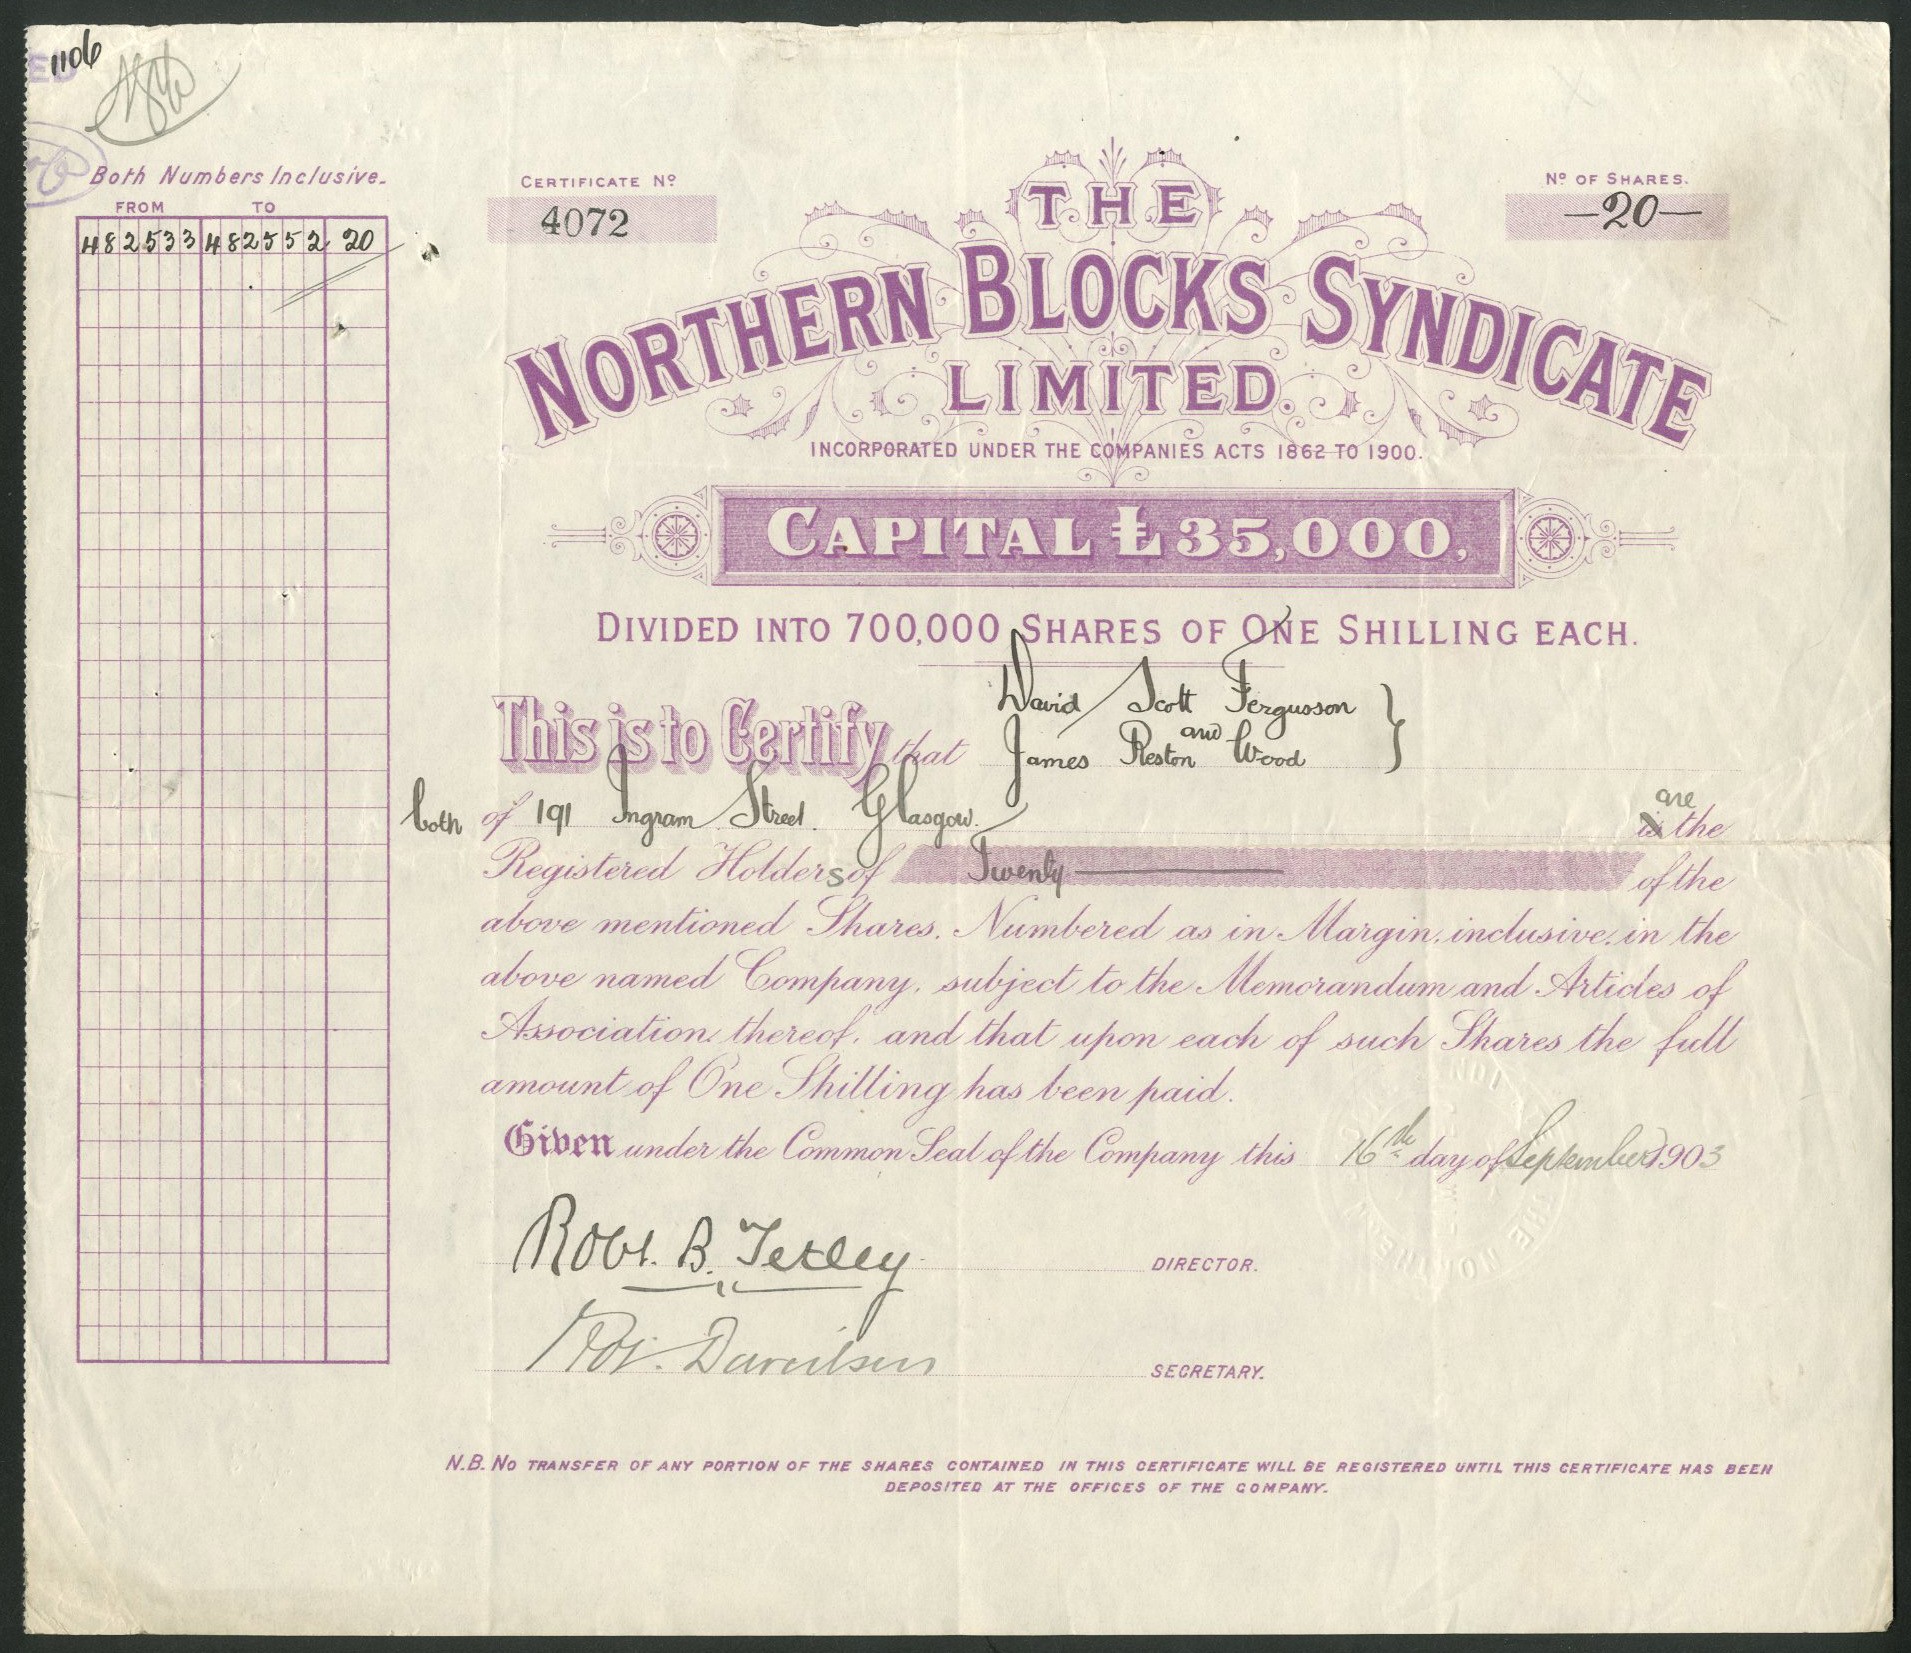 1106
Both Numbers Inclusive.
FROM TO
482533 482552 20
CERTIFICATE Nº
4072
Nº OF SHARES.
—20—
THE
NORTHERN BLOCKS SYNDICATE
LIMITED.
INCORPORATED UNDER THE COMPANIES ACTS 1862 TO 1900.
CAPITAL £35,000,
DIVIDED INTO 700,000 SHARES OF ONE SHILLING EACH.
David Scott Fergusson
This is to Certify that James Reston and Wood
both of 191 Ingram Street. Glasgow. is are the
Registered Holders of Twenty of the
above mentioned Shares. Numbered as in Margin, inclusive, in the
above named Company, subject to the Memorandum and Articles of
Association thereof, and that upon each of such Shares the full
amount of One Shilling has been paid.
Given under the Common Seal of the Company this 16th day of September 1903
Robt. B. Tetley
DIRECTOR.
Davidson
SECRETARY.
N.B. NO TRANSFER OF ANY PORTION OF THE SHARES CONTAINED IN THIS CERTIFICATE WILL BE REGISTERED UNTIL THIS CERTIFICATE HAS BEEN
DEPOSITED AT THE OFFICES OF THE COMPANY.